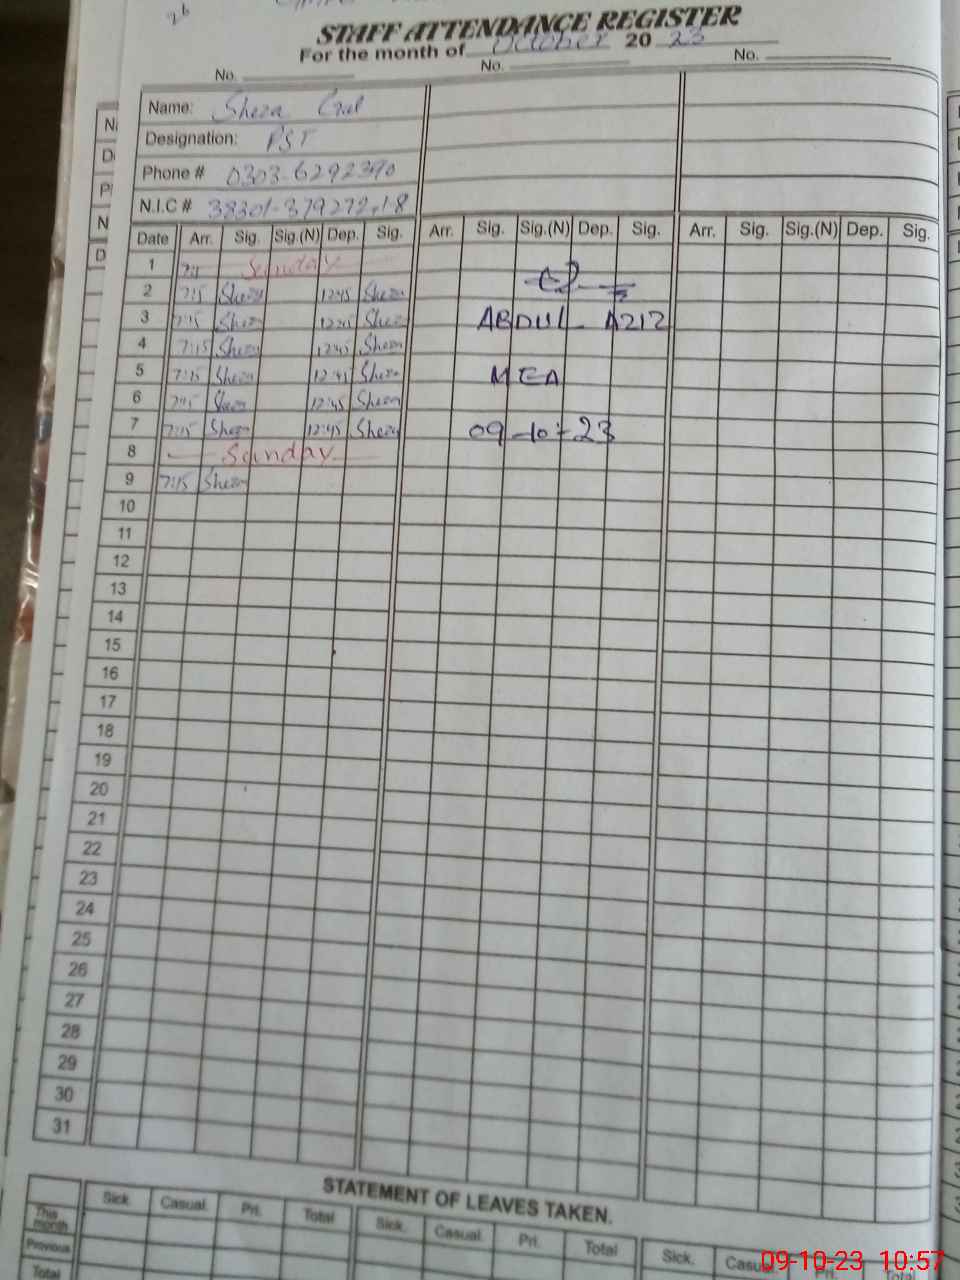 STAFF ATTENDANCE REGISTER
For the month of October 20 23
No. No. No.
Name: Sheza Gul
Designation: PST
Phone # 0303-6292390
N.I.C #
Date Arr. Sig. Sig.(N) Dep. Sig. Arr. Sig. Sig.(N) Dep. Sig. Arr. Sig. Sig.(N) Dep. Sig.
1 Sunday
2 7:15 Sheza 12:45 Sheza
3 7:15 Sheza 12:45 Sheza ABDUL AZIZ
4 7:15 Sheza 12:45 Sheza
5 7:15 Sheza 12:45 Sheza MEA
6 7:15 Sheza 12:45 Sheza
7 7:15 Sheza 12:45 Sheza 09-10-23
8 Sunday
9 7:15 Sheza
10
11
12
13
14
15
16
17
18
19
20
21
22
23
24
25
26
27
28
29
30
31
STATEMENT OF LEAVES TAKEN.
Sick. Casual. Pri. Total Sick. Casual. Pri. Total Sick. Casual. Pri. Total
This month
Previous
Total
09-10-23 10:57